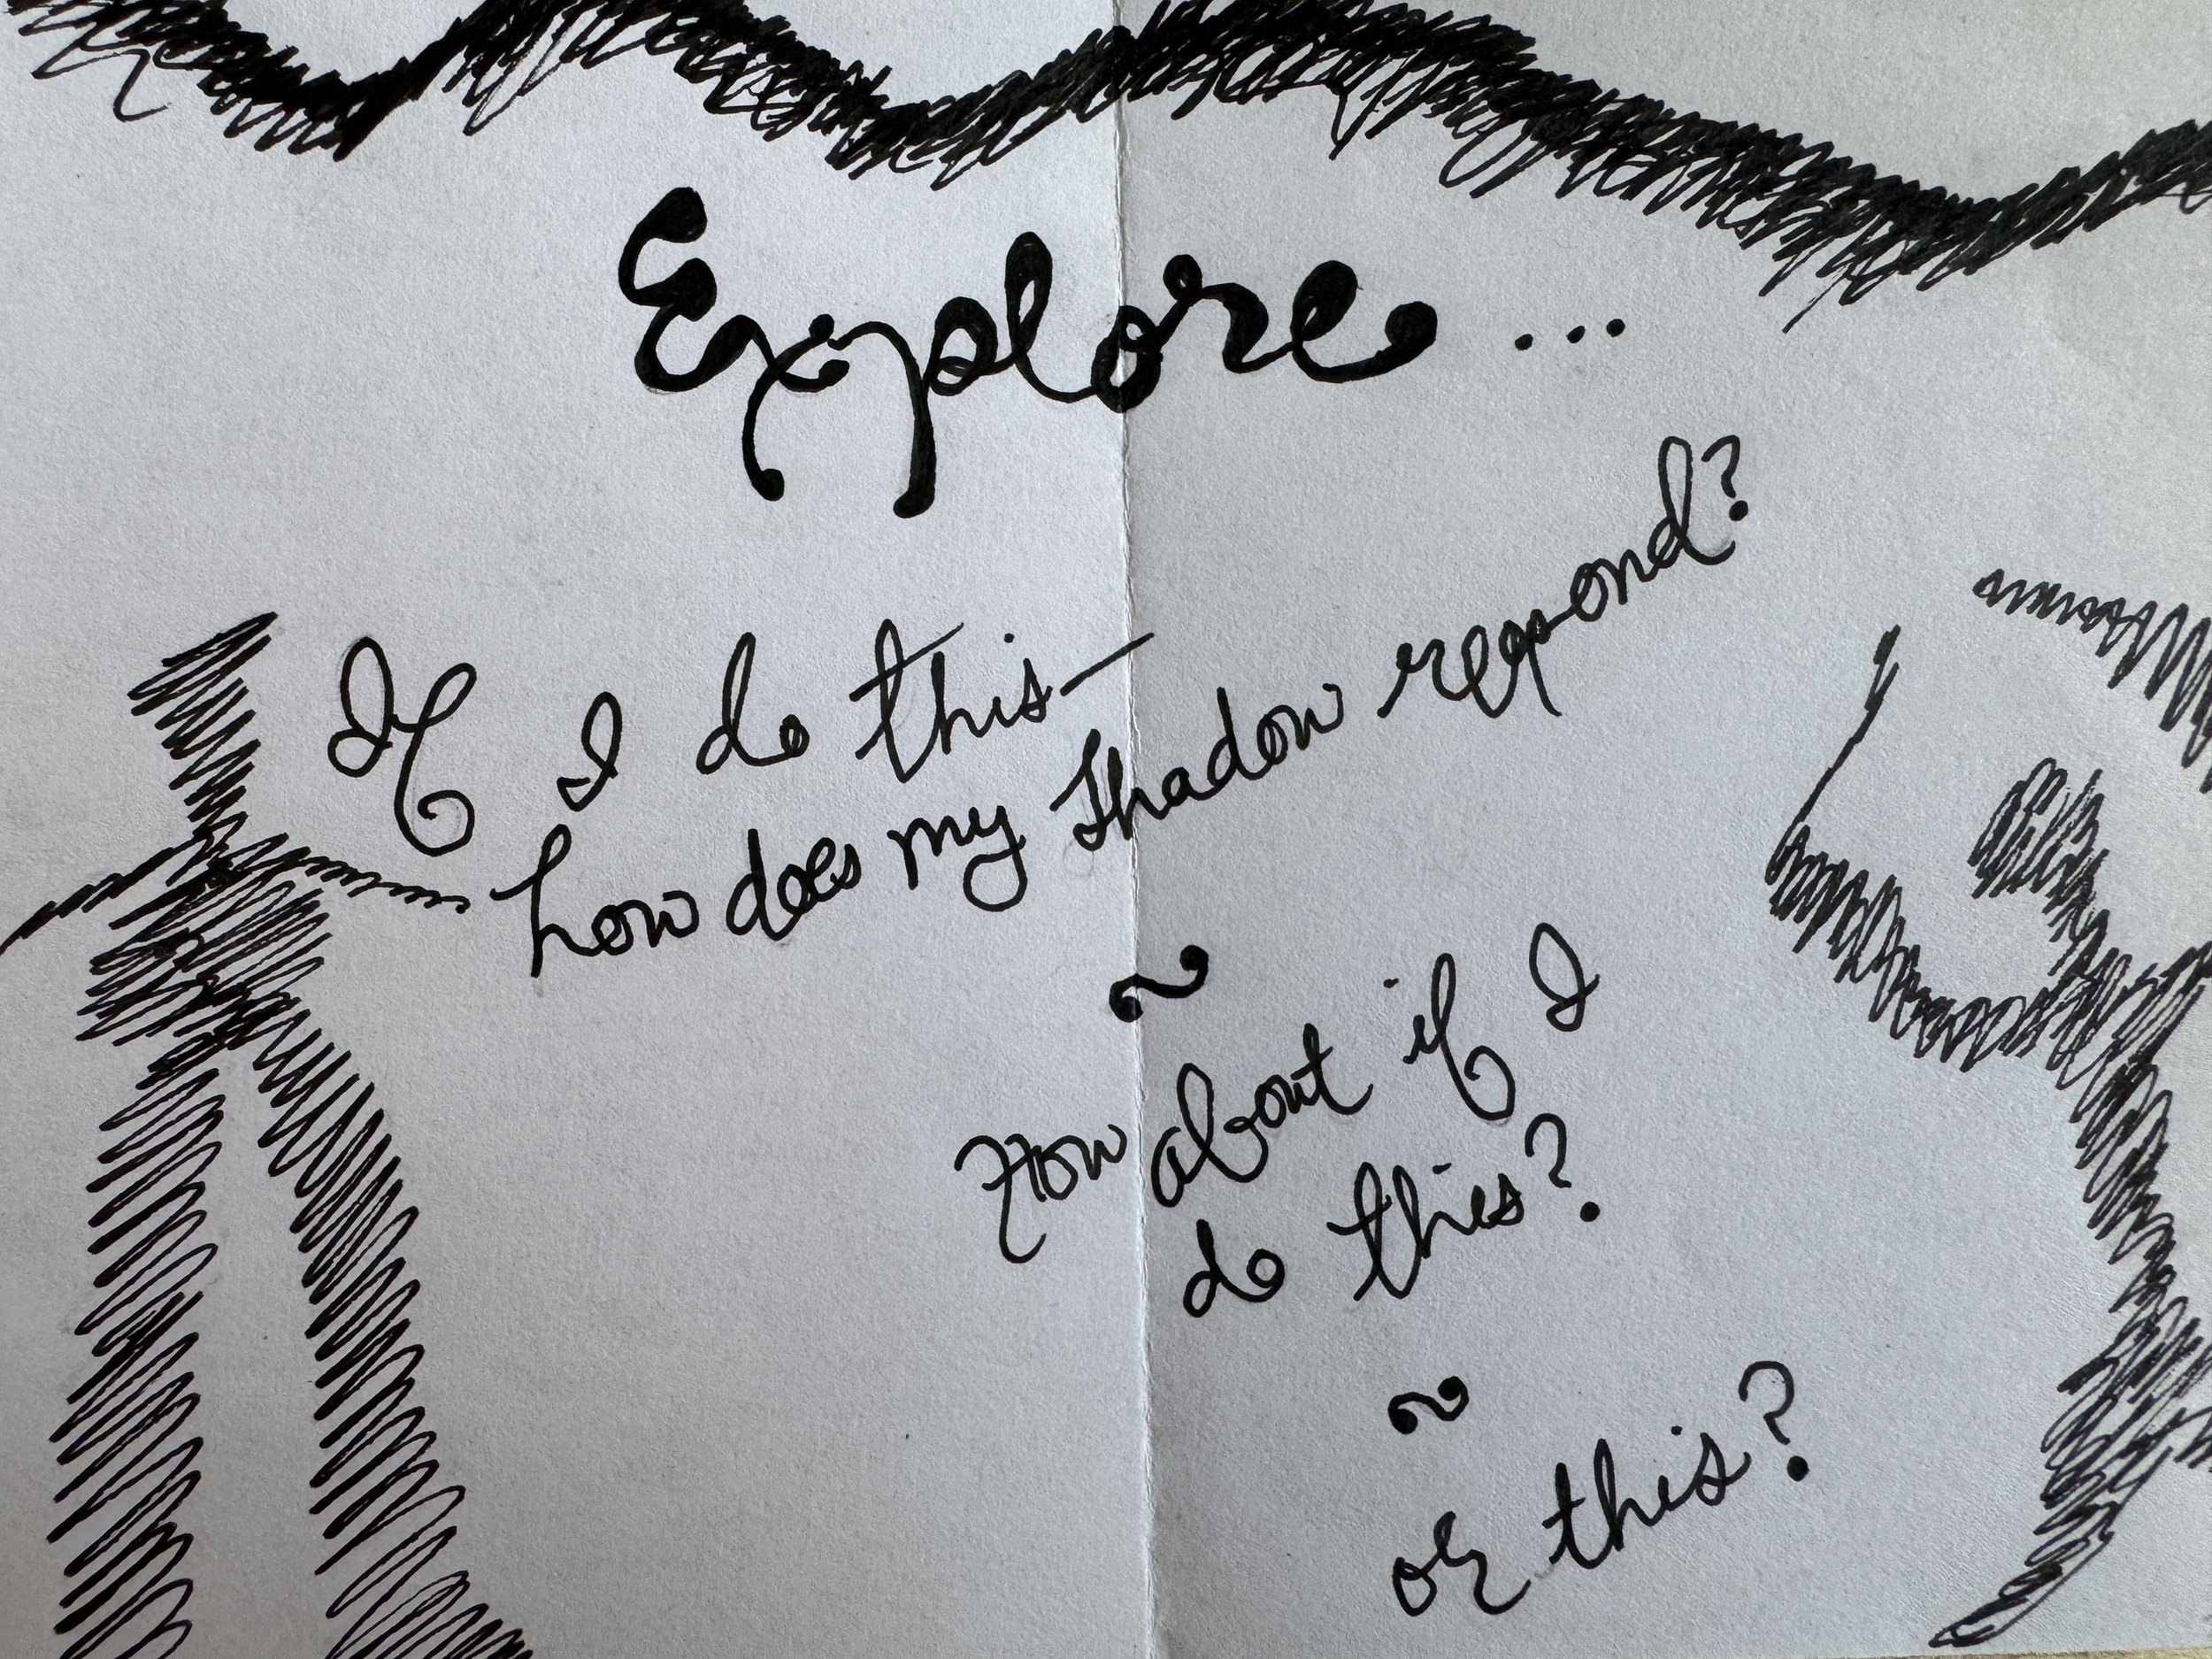 Explore...
If I do this—
how does my shadow respond?
~
How about if I
do this?
~
or this?